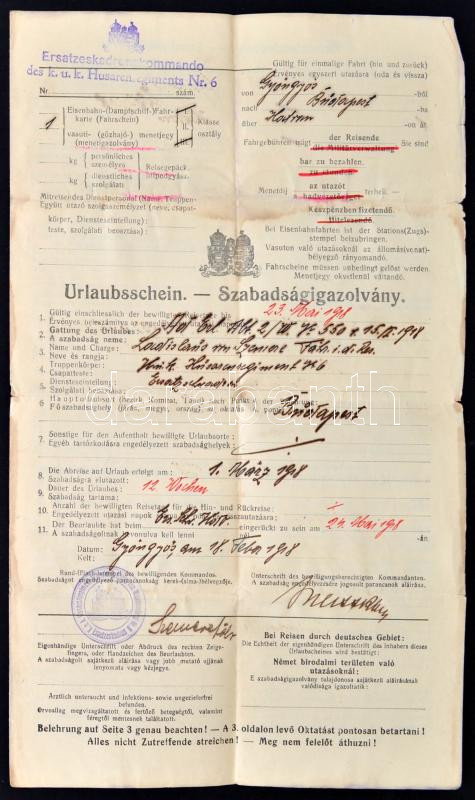 Ersatzeskadronskommando
des k. u. k. Husarenregiments Nr. 6
Nr. szám.
Gültig für einmalige Fahrt (hin und zurück)
Érvényes egyszeri utazásra (oda és vissza)
von Gyöngyös -ból
nach Budapest -ba
über Hatvan -on át
1 Eisenbahn-(Dampfschiff-)Fahr-
karte (Fahrschein)
vasuti- (gőzhajó-) menetjegy
(menetigazolvány)
II. Klasse
osztály
kg persönliches
személyes
kg dienstliches
szolgálati
Reisegepäck.
utipodgyász.
Fahrgebühren trägt der Reisende
die Militärverwaltung
Sie sind
bar zu bezahlen.
zu stunden.
Menetdíj az utazót
a hadvezetőséget terheli.
Készpénzben fizetendő.
Hitelezendő.
Mitreisendes Dienstpersonal (Name, Truppen-
Együtt utazó szolgaszemélyzet (neve, csapat-
körper, Diensteseinteilung):
teste, szolgálati beosztása):
Bei Eisenbahnfahrten ist der Stations(Zugs)
stempel beizubringen.
Vasuton való utazásoknál az állomás(vonat)-
bélyegző rányomandó.
Fahrscheine müssen unbedingt gelöst werden.
Menetjegy okvetlenül váltandó.
Urlaubsschein. — Szabadságigazolvány.
1. Gültig einschliesslich der bewilligten Reisetage bis 23. Mai 918
Érvényes, beleszámítva az engedélyezett
2. Gattung des Urlaubes:
A szabadság neme:
3. Name und Charge: Ladislaus v. Szemere
Neve és rangja:
4. Truppenkörper: Husarenregiment No 6
Csapatteste:
5. Diensteseinteilung:
Szolgálati beosztása:
6. Hauptaufenthaltsort (Bezirk, Komitat, Land,
Főszabadsághely (járás, megye, ország) Budapest
7. Sonstige für den Aufenthalt bewilligte Urlaubsorte:
Egyéb tartózkodásra engedélyezett szabadsághelyek:
8. Die Abreise auf Urlaub erfolgt am: 1. März 918
Szabadságra elutazott:
9. Dauer des Urlaubes: 12 Wochen
Szabadság tartama:
10. Anzahl der bewilligten Reisetage für die Hin- und Rückreise:
Engedélyezett utazási napok
11. Der Beurlaubte hat beim eingerückt zu sein am 24. Mai 918
A szabadságolnak bevonulva kell lenni -nál -án
Datum: Gyöngyös am 18. Feber 918
Kelt:
Rand-(Flach-)stempel des bewilligenden Kommandos.
Szabadságot engedélyező parancsnokság kerek-(sima-)bélyegzője.
Unterschrift des bewilligungsberechtigten Kommandanten.
A szabadság engedélyezésére jogosult parancsnok aláírása.
Eigenhändige Unterschrift oder Abdruck des rechten Zeige-
fingers, oder Handzeichen des Beurlaubten.
A szabadságolt sajátkezű aláírása vagy jobb mutató ujjának
lenyomata vagy kézjegye.
Bei Reisen durch deutsches Gebiet:
Die Echtheit der eigenhändigen Unterschrift des Inhabers dieses
Urlaubscheines wird bestätigt:
Német birodalmi területen való
utazásoknál:
E szabadságigazolvány tulajdonosa sajátkezű aláírásának
valódisága igazoltatik:
Ärztlich untersucht und infektions- sowie ungezieferfrei
befunden.
Orvosilag megvizsgáltatott és fertőző betegségtől, valamint
féregtől mentesnek találtatott.
Belehrung auf Seite 3 genau beachten! — A 3. oldalon levő Oktatást pontosan betartani!
Alles nicht Zutreffende streichen! — Meg nem felelőt áthuzni!
darabanth